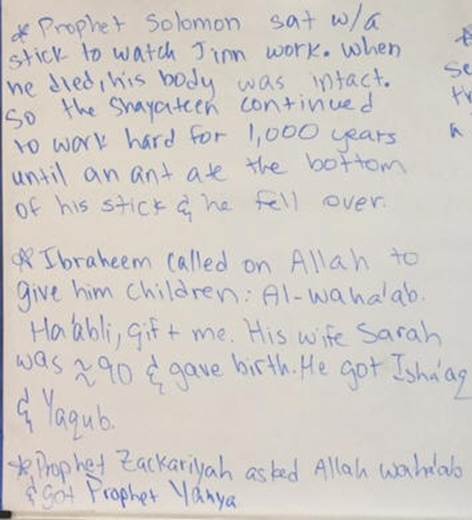 * Prophet Solomon sat w/a
stick to watch Jinn work. when
he died, his body was intact.
So the Shayateen continued
to work hard for 1,000 years
until an ant ate the bottom
of his stick & he fell over.
* Ibraheem called on Allah to
give him children: Al-waha'ab.
Ha'abli, gift me. His wife Sarah
was ≈90 & gave birth. He got Isha'aq
& Yaqub.
* Prophet Zackariyah asked Allah waha'ab
& got Prophet Yahya